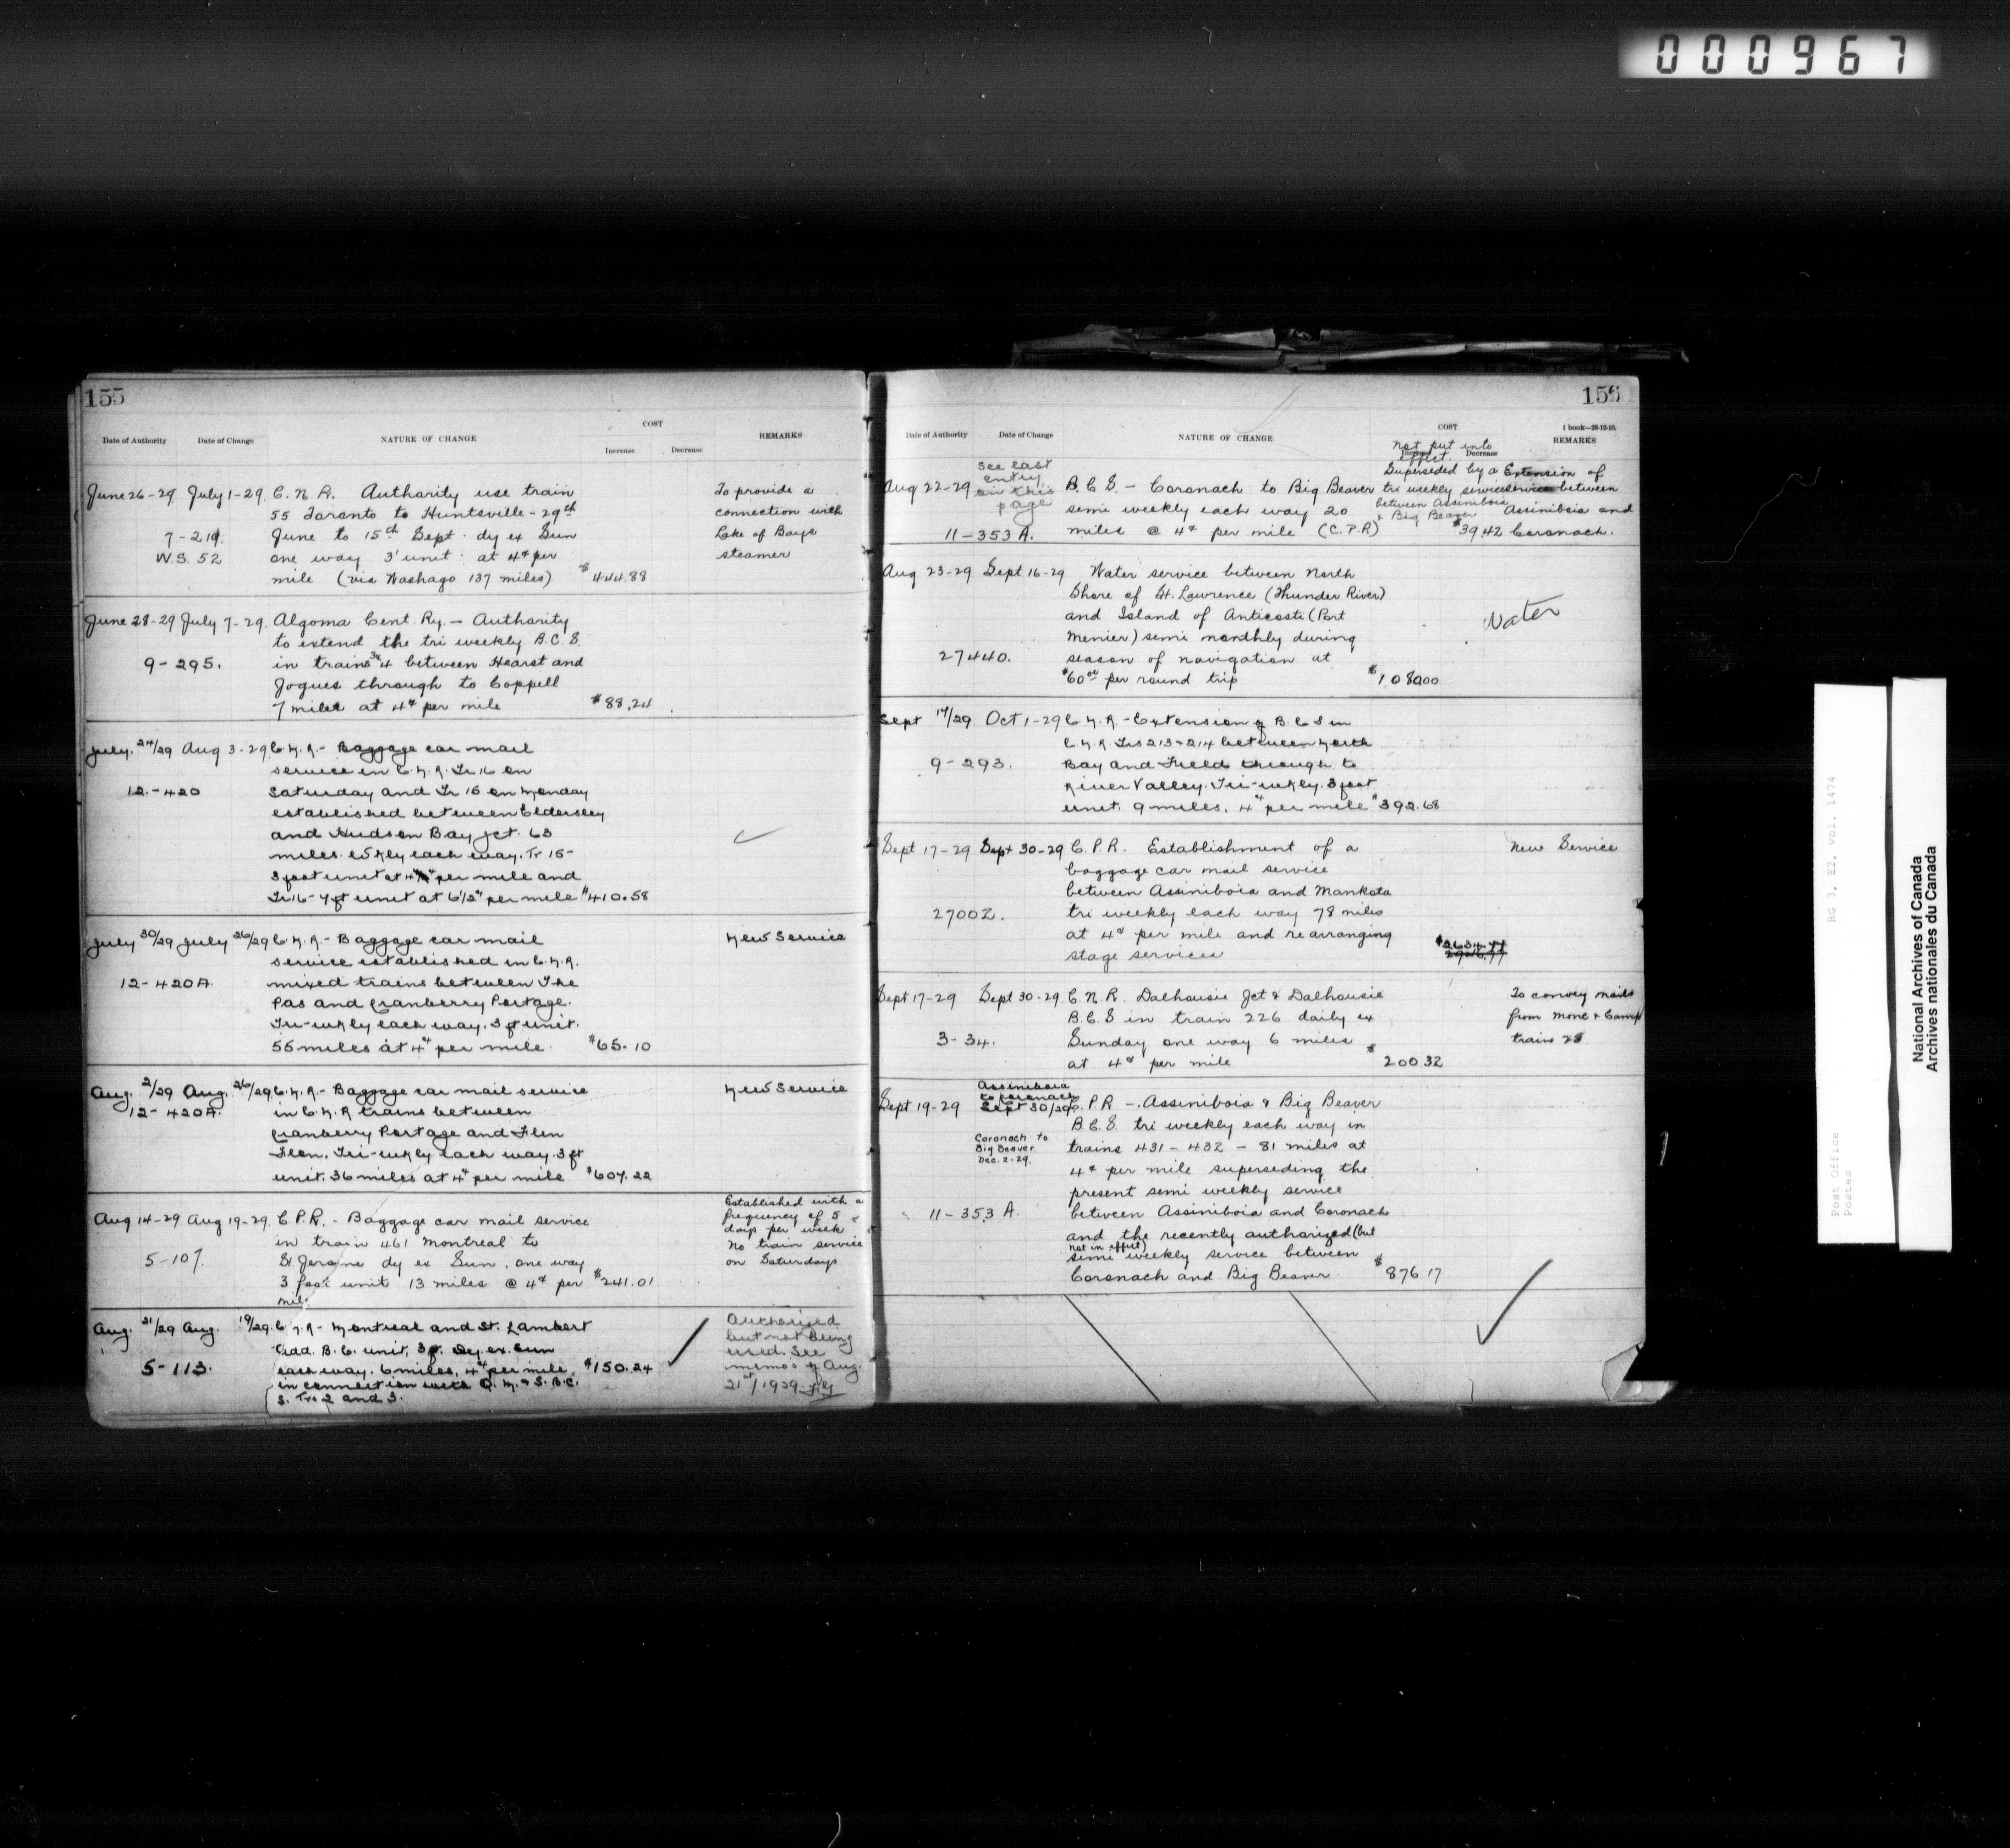 000967
155
COST
Date of Authority Date of Change NATURE OF CHANGE Increase Decrease REMARKS
June 26-29 July 1-29. C.N.R. Authority use train To provide a
55 Toronto to Huntsville - 29th connection with
7-219. June to 15th Sept. dy ex Sun Lake of Bays
W.S. 52 one way 3' unit at 4¢ per steamer
mile (via Washago 137 miles) $444.88
June 28-29 July 7-29. Algoma Cent. Ry. - Authority
to extend the tri weekly B.C.S.
9-295. in trains 3&4 between Hearst and
Jogues through to Coppell
7 miles at 4¢ per mile $88.24
July 24/29 Aug 3-29 C.N.R. - Baggage car mail
service in C.N.R. Tr 16 on
12-420 Saturday and Tr 16 on Monday
established between Eldersley
and Hudson Bay Jct. 63
miles. Wkly each way. Tr 15-
3 foot unit at 4¢ per mile and
Tr 16 - 7 ft unit at 6½¢ per mile $410.58
July 30/29 July 26/29 C.N.R. - Baggage car mail New Service
service established in C.N.R.
12-420A. mixed trains between The
Pas and Cranberry Portage.
Tri-wkly each way. 3 ft unit.
55 miles at 4¢ per mile. $65.10
Aug. 2/29 Aug. 26/29 C.N.R. - Baggage car mail service New Service
12-420A. in C.N.R trains between
Cranberry Portage and Flin
Flon. Tri-wkly each way. 3 ft
unit. 36 miles at 4¢ per mile $607.22
Aug 14-29 Aug 19-29. C.P.R. - Baggage car mail service Established with a
in train 461 Montreal to frequency of 5
5-107. St. Jerome dy ex Sun. one way days per week
3 foot unit 13 miles @ 4¢ per $241.01 No train service
mile on Saturdays
Aug. 21/29 Aug. 19/29 C.N.R - Montreal and St. Lambert Authorized
Add. B.C. unit, 3 ft. Dy. ex. Sun but not being
5-113. each way. 6 miles. 4¢ per mile $150.24 used. See
in connection with Q. M. & S. B.C. memo of Aug.
S. Trs 2 and 3. 21st/1929
156
COST 1 book-28-12-10.
Date of Authority Date of Change NATURE OF CHANGE Increase Decrease REMARKS
Not put into
effect.
See last Superseded by a Extension of
entry
Aug 22-29 on this B.C.S. - Coronach to Big Beaver tri weekly service service between
page semi weekly each way 20 between Assiniboia Assiniboia and
& Big Beaver
11-353 A. miles @ 4¢ per mile (C.P.R) $39 42 Coronach.
Aug 23-29 Sept 16-29 Water service between North
Shore of St. Lawrence (Thunder River)
and Island of Anticosti (Port Water
Menier) semi monthly during
27440. season of navigation at
$60.00 per round trip $1,080.00
Sept 17/29 Oct 1-29 C.N.R. - Extension of B.C.S in
C.N.R. Trs 213-214 between North
9-293. Bay and Field through to
River Valley. Tri-wkly. 3 foot
unit. 9 miles. 4¢ per mile $392.68
Sept 17-29 Sept 30-29 C.P.R. Establishment of a New Service
baggage car mail service
between Assiniboia and Mankota
2700Z. tri weekly each way 78 miles
at 4¢ per mile and rearranging
stage services
Sept 17-29 Sept 30-29. C.N.R. Dalhousie Jct & Dalhousie To convey mails
B.C.S in train 226 daily ex from Monc & Camp
3-34. Sunday one way 6 miles train 28
at 4¢ per mile $200 32
Assiniboia
to Coronach
Sept 19-29 Sept 30/29 C.P.R - Assiniboia & Big Beaver
B.C.S. tri weekly each way in
Coronach to trains 431 - 432 - 81 miles at
Big Beaver
Dec. 2-29. 4¢ per mile superseding the
present semi weekly service
11-353 A. between Assiniboia and Coronach
and the recently authorized (but
not in effect)
semi weekly service between
Coronach and Big Beaver $876 17
RG 3, E2, vol. 1474
Post Office
Postes
National Archives of Canada
Archives nationales du Canada